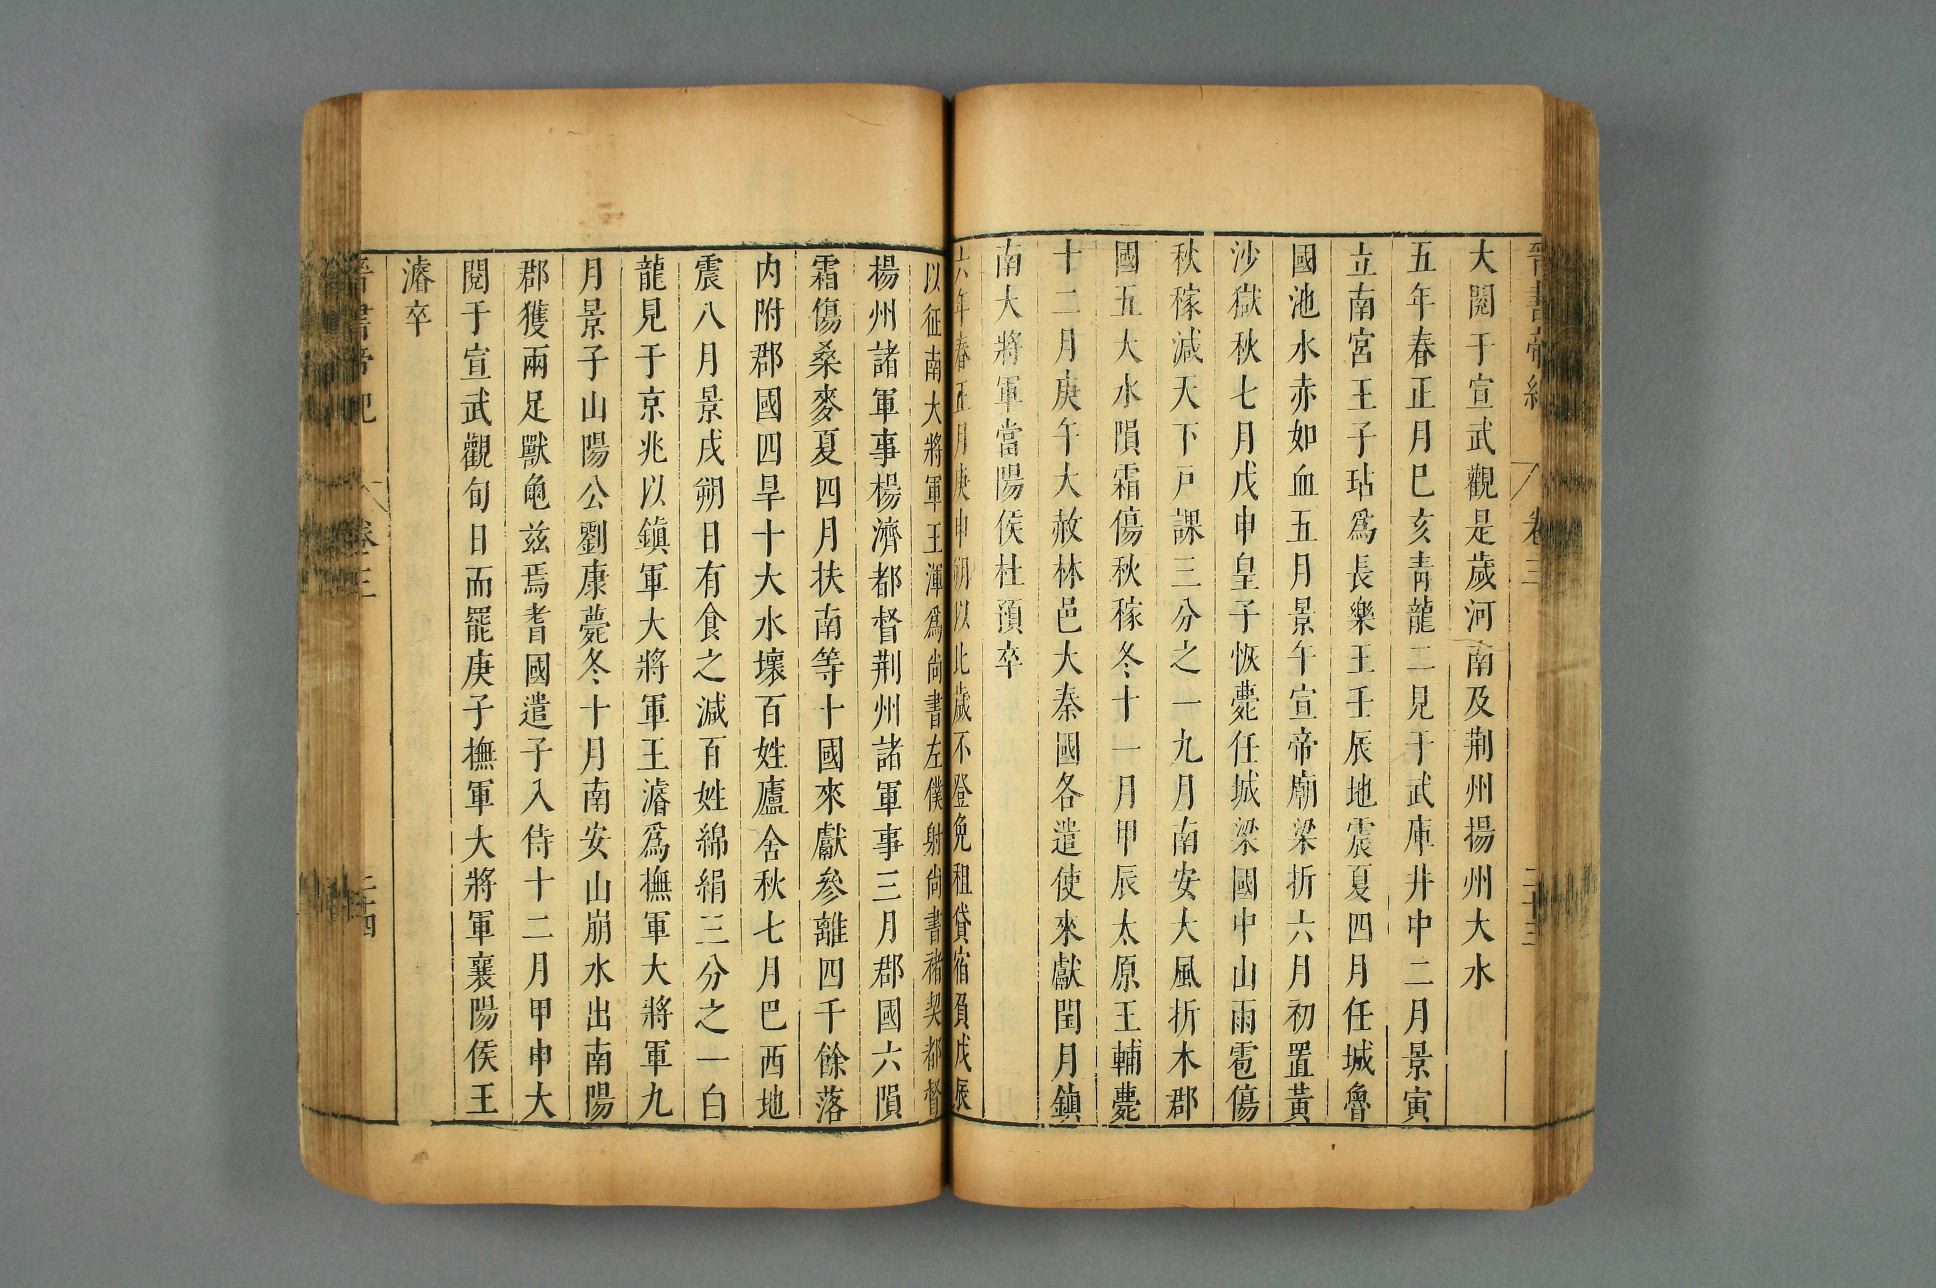 晉書帝紀 卷三 二十三
大閱于宣武觀是歲河南及荆州揚州大水
五年春正月巳亥青龍二見于武庫井中二月景寅
立南宮王子玷爲長樂王壬辰地震夏四月任城魯
國池水赤如血五月景午宣帝廟梁折六月初置黃
沙獄秋七月戊申皇子恢薨任城梁國中山雨雹傷
秋稼減天下戸課三分之一九月南安大風折木郡
國五大水隕霜傷秋稼冬十一月甲辰太原王輔薨
十二月庚午大赦林邑大秦國各遣使來獻閏月鎮
南大將軍當陽侯杜預卒
六年春正月庚申朔以比歲不登免租貸宿負戊辰
以征南大將軍王渾爲尚書左僕射尚書褚䂮都督
揚州諸軍事楊濟都督荆州諸軍事三月郡國六隕
霜傷桑麥夏四月扶南等十國來獻參離四千餘落
内附郡國四旱十大水壞百姓廬舍秋七月巴西地
震八月景戌朔日有食之減百姓綿絹三分之一白
龍見于京兆以鎮軍大將軍王濬爲撫軍大將軍九
月景子山陽公劉康薨冬十月南安山崩水出南陽
郡獲兩足獸龜兹焉耆國遣子入侍十二月甲申大
閱于宣武觀旬日而罷庚子撫軍大將軍襄陽侯王
濬卒
晉書帝紀 卷三 二十四